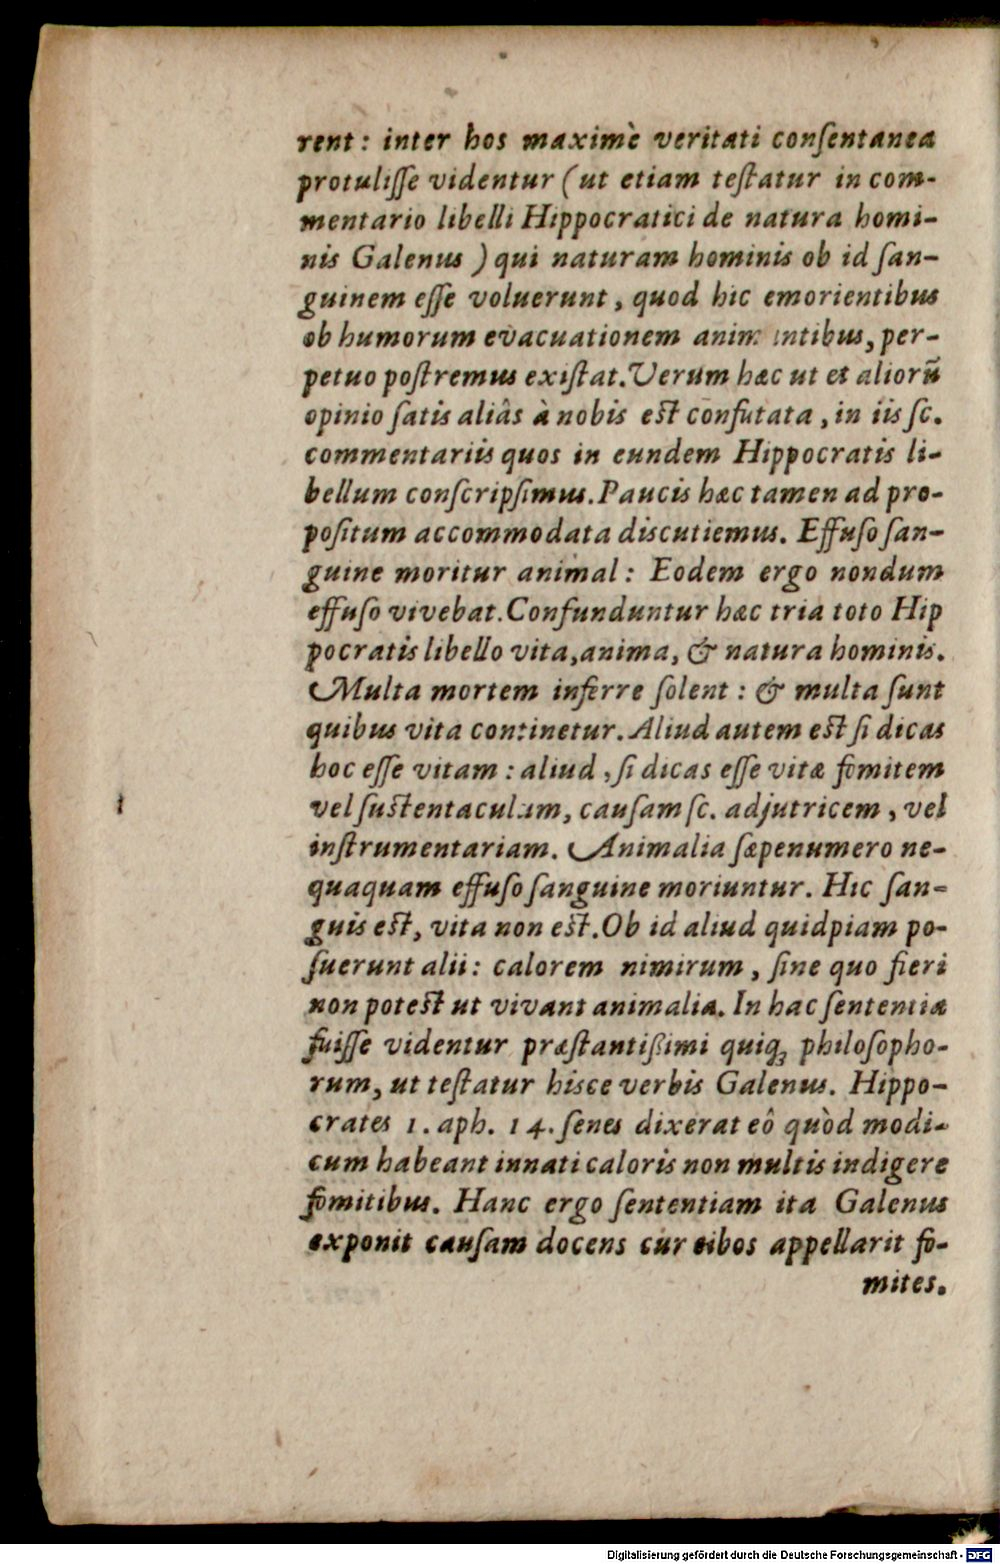 rent: inter hos maximè veritati conſentanea
protuliſſe videntur (ut etiam teſtatur in com-
mentario libelli Hippocratici de natura homi-
nis Galenus) qui naturam hominis ob id ſan-
guinem eſſe voluerunt, quod hic emorientibus
ob humorum evacuationem animantibus, per-
petuo poſtremus exiſtat. Verum hæc ut et aliorũ
opinio ſatis aliâs à nobis eſt confutata, in iis ſc.
commentariis quos in eundem Hippocratis li-
bellum conſcripſimus. Paucis hæc tamen ad pro-
poſitum accommodata discutiemus. Effuſo ſan-
guine moritur animal: Eodem ergo nondum
effuſo vivebat. Confunduntur hæc tria toto Hip
pocratis libello vita, anima, & natura hominis.
Multa mortem inferre ſolent: & multa ſunt
quibus vita continetur. Aliud autem eſt ſi dicas
hoc eſſe vitam: aliud, ſi dicas eſſe vitæ fomitem
vel ſuſtentaculum, cauſam ſc. adjutricem, vel
inſtrumentariam. Animalia ſæpenumero ne-
quaquam effuſo ſanguine moriuntur. Hic ſan-
guis eſt, vita non eſt. Ob id aliud quidpiam po-
ſuerunt alii: calorem nimirum, ſine quo fieri
non poteſt ut vivant animalia. In hac ſententia
fuiſſe videntur præſtantißimi quiq; philoſopho-
rum, ut teſtatur hisce verbis Galenus. Hippo-
crates 1. aph. 14. ſenes dixerat eô quòd modi-
cum habeant innati caloris non multis indigere
fomitibus. Hanc ergo ſententiam ita Galenus
exponit cauſam docens cur cibos appellarit fo-
mites.
Digitalisierung gefördert durch die Deutsche Forschungsgemeinschaft - DFG